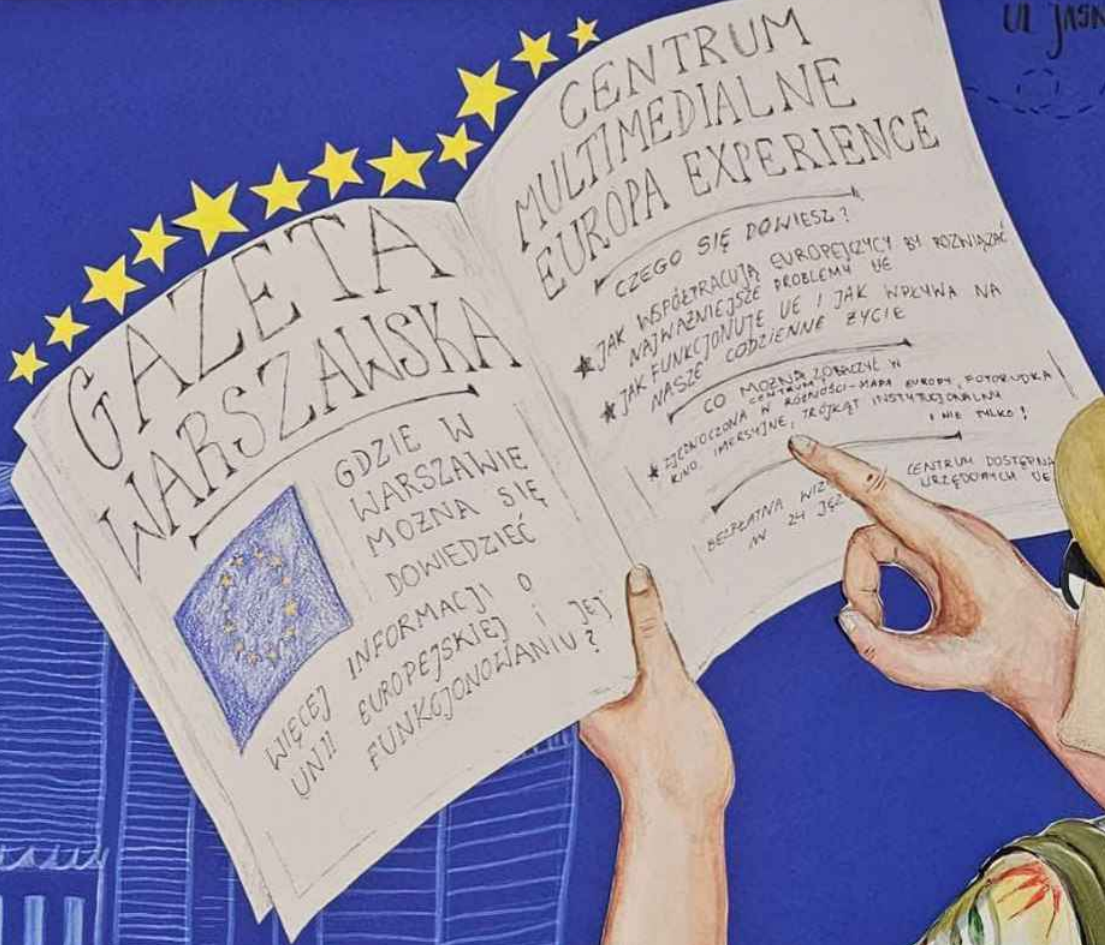 GAZETA
WARSZAWSKA
GDZIE W
WARSZAWIE
MOŻNA SIĘ
DOWIEDZIEĆ
WIĘCEJ INFORMACJI O
UNII EUROPEJSKIEJ I JEJ
FUNKCJONOWANIU?
CENTRUM
MULTIMEDIALNE
EUROPA EXPERIENCE
CZEGO SIĘ DOWIESZ?
★JAK WSPÓŁPRACUJĄ EUROPEJCZYCY BY ROZWIĄZAĆ
NAJWAŻNIEJSZE PROBLEMY UE
★JAK FUNKCJONUJE UE I JAK WPŁYWA NA
NASZE CODZIENNE ŻYCIE
CO MOŻNA ZOBACZYĆ W
CENTRUM?
★ ZJEDNOCZONA W RÓŻNOŚCI-MAPA EUROPY, FOTOBUDKA
KINO IMERSYJNE, TRÓJKĄT INSTYTUCJONALNY
I NIE TYLKO!
CENTRUM DOSTĘPNA
URZĘDOWYCH UE
BEZPŁATNA
W 24
UL